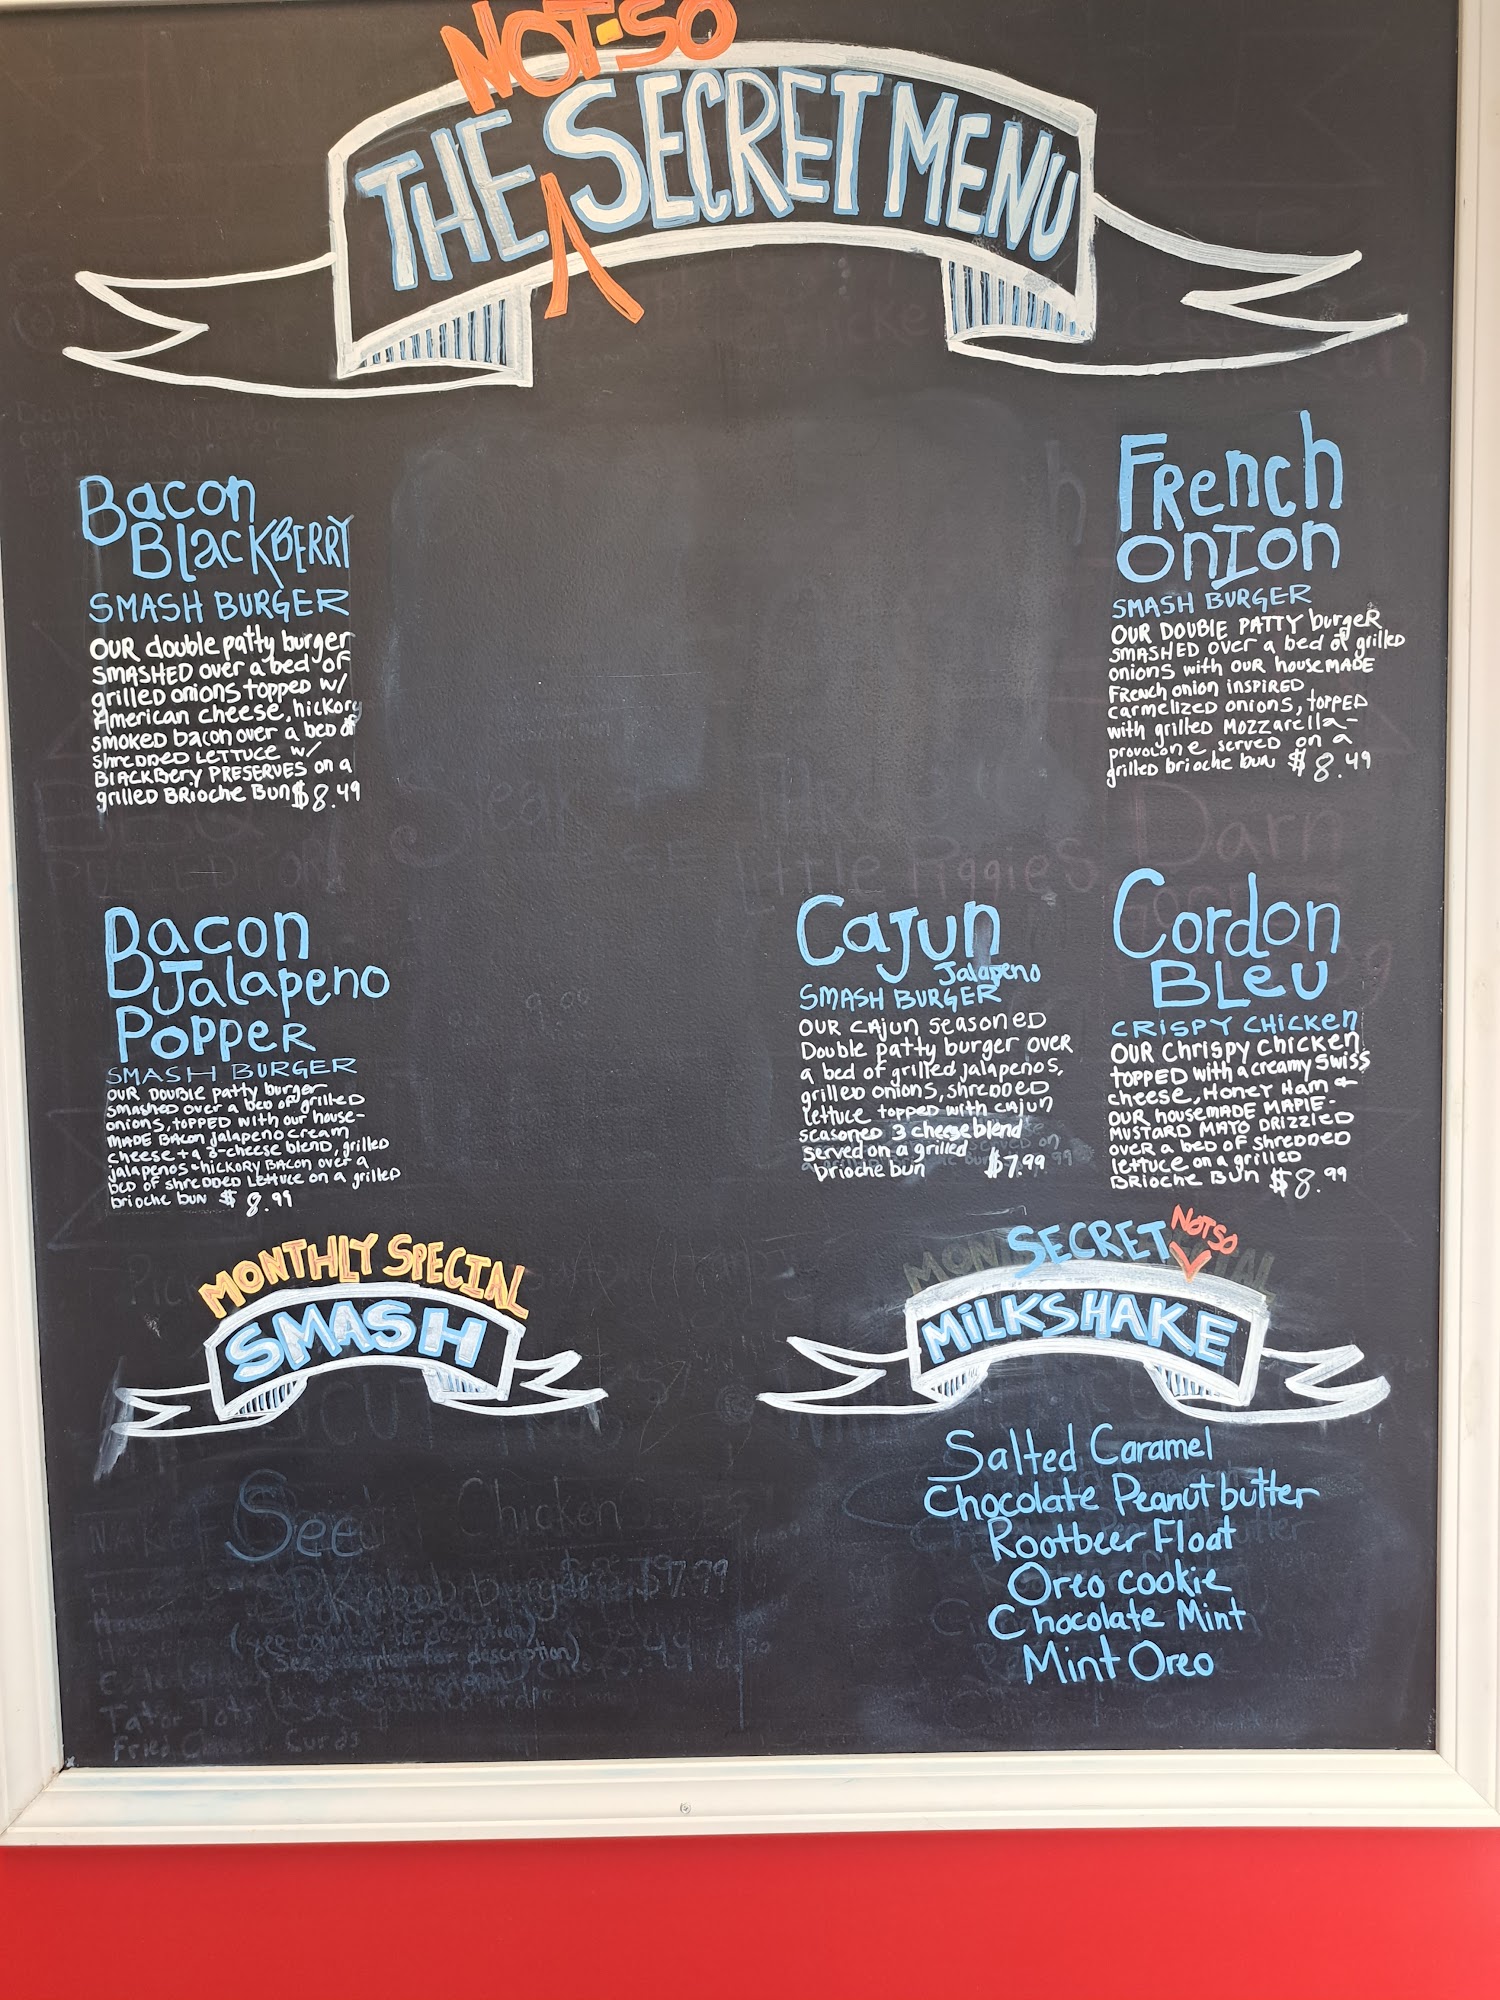 NOT-SO
THE SECRET MENU
Bacon
BlackBERRY
SMASH BURGER
OUR double patty burger
SMASHED over a bed of
grilled onions topped w/
American cheese, hickory
smoked bacon over a bed of
shredded LETTUCE w/
BlACKBery PRESERVES on a
grilled BRioche Bun $8.49
French
Onion
SMASH BURGER
OUR DOUBLE PATTY burgeR
SMASHED over a bed of grilled
onions with our houseMADE
French onion INSPIRED
carmelized onions, topped
with grilled Mozzarella-
provolone served on a
grilled brioche bun $8.49
Bacon
Jalapeno
Popper
SMASH BURGER
OUR DOUBLE patty burger
Smashed over a bed of grilled
onions, topped with our house-
MADE BAcon jalapeno cream
cheese + a 3-cheese blend, grilled
jalapenos + hickory BAcon over a
bed of shredded Lettuce on a grilled
brioche bun $8.99
Cajun
Jalapeno
SMASH BURGER
OUR CAjun seasoned
Double patty burger over
a bed of grilled jalapenos,
grilled onions, shredded
lettuce topped with cajun
seasoned 3 cheese blend
served on a grilled
brioche bun $7.99
Cordon
Bleu
CRISPY CHICKEN
OUR Chrispy chicken
topped with a creamy Swiss
cheese, Honey Ham +
OUR houseMADE MAPlE-
MUSTARD MAYO DRIZZLED
over a bed of shredded
lettuce on a grilled
BRioche Bun $8.99
MONTHLY SPECIAL
SMASH
NOT SO
SECRET
MILKSHAKE
Salted Caramel
Chocolate Peanut butter
Rootbeer Float
Oreo cookie
Chocolate Mint
Mint Oreo